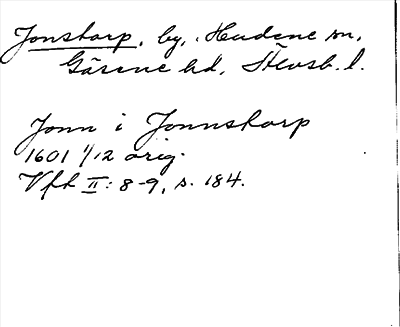 Jonstorp, by, Hudene sn,
Gäsene hd, Älvsb. l.
Jonn i Jonnstorp
1601 1/12 orig.
Vft II: 8-9, s. 184.